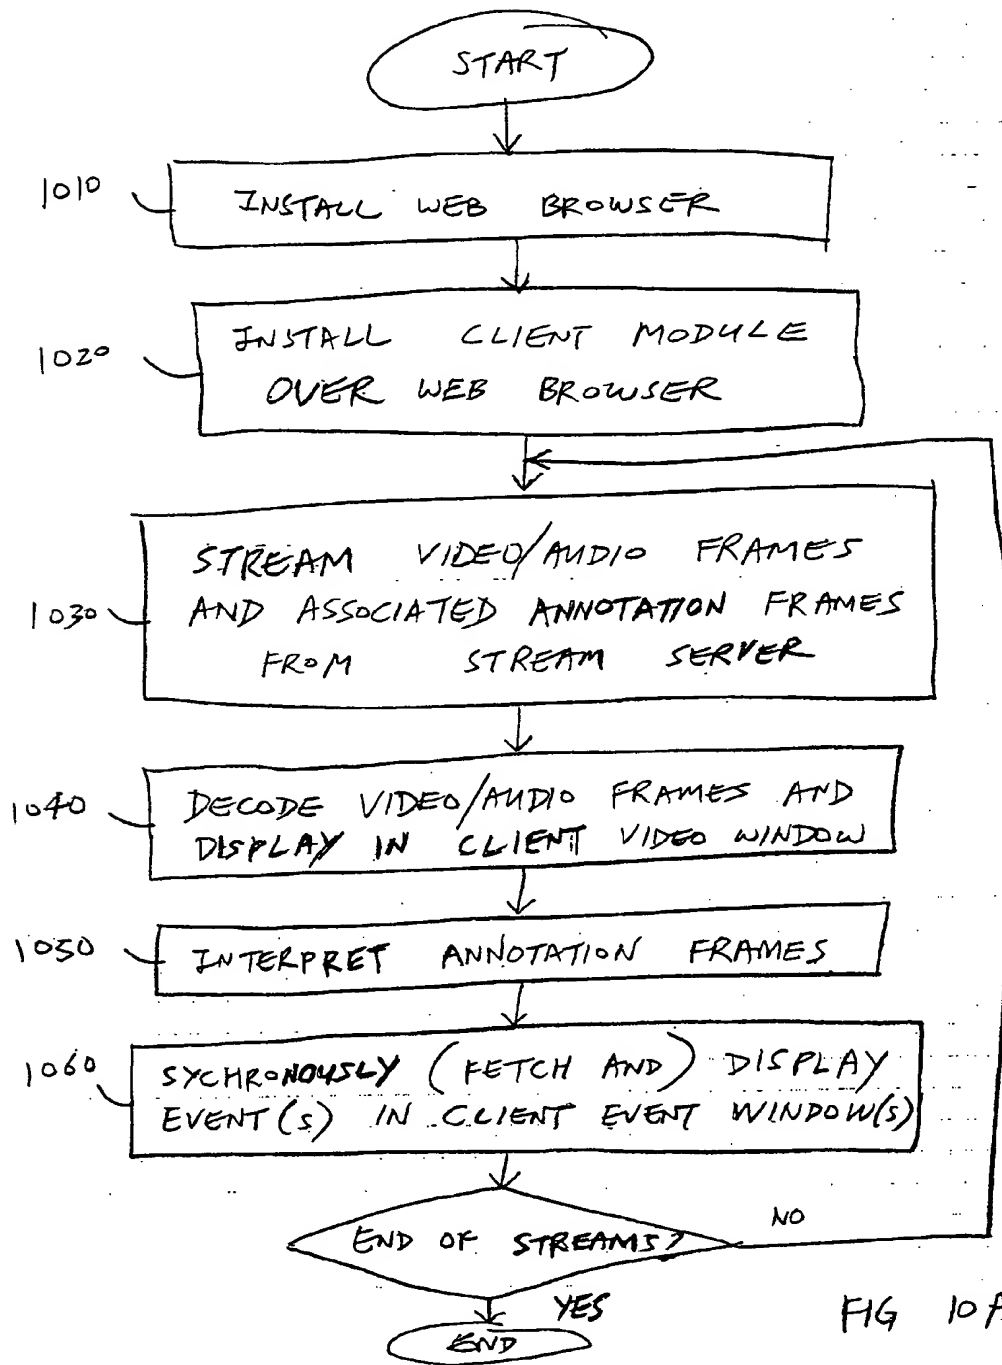 START
1010
INSTALL WEB BROWSER
1020
INSTALL CLIENT MODULE
OVER WEB BROWSER
1030
STREAM VIDEO/AUDIO FRAMES
AND ASSOCIATED ANNOTATION FRAMES
FROM STREAM SERVER
1040
DECODE VIDEO/AUDIO FRAMES AND
DISPLAY IN CLIENT VIDEO WINDOW
1050
INTERPRET ANNOTATION FRAMES
1060
SYCHRONOUSLY (FETCH AND) DISPLAY
EVENT(S) IN CLIENT EVENT WINDOW(S)
END OF STREAMS?
NO
YES
END
FIG 10A